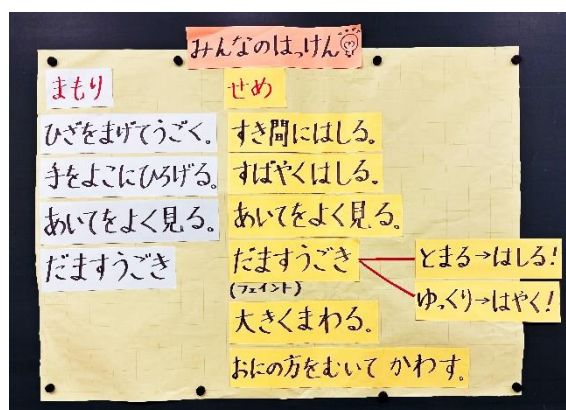 みんなのはっけん
まもり
ひざをまげてうごく。
手をよこにひろげる。
あいてをよく見る。
だますうごき
せめ
すき間にはしる。
すばやくはしる。
あいてをよく見る。
だますうごき
(フェイント)
とまる→はしる!
ゆっくり→はやく!
大きくまわる。
おにの方をむいて かわす。